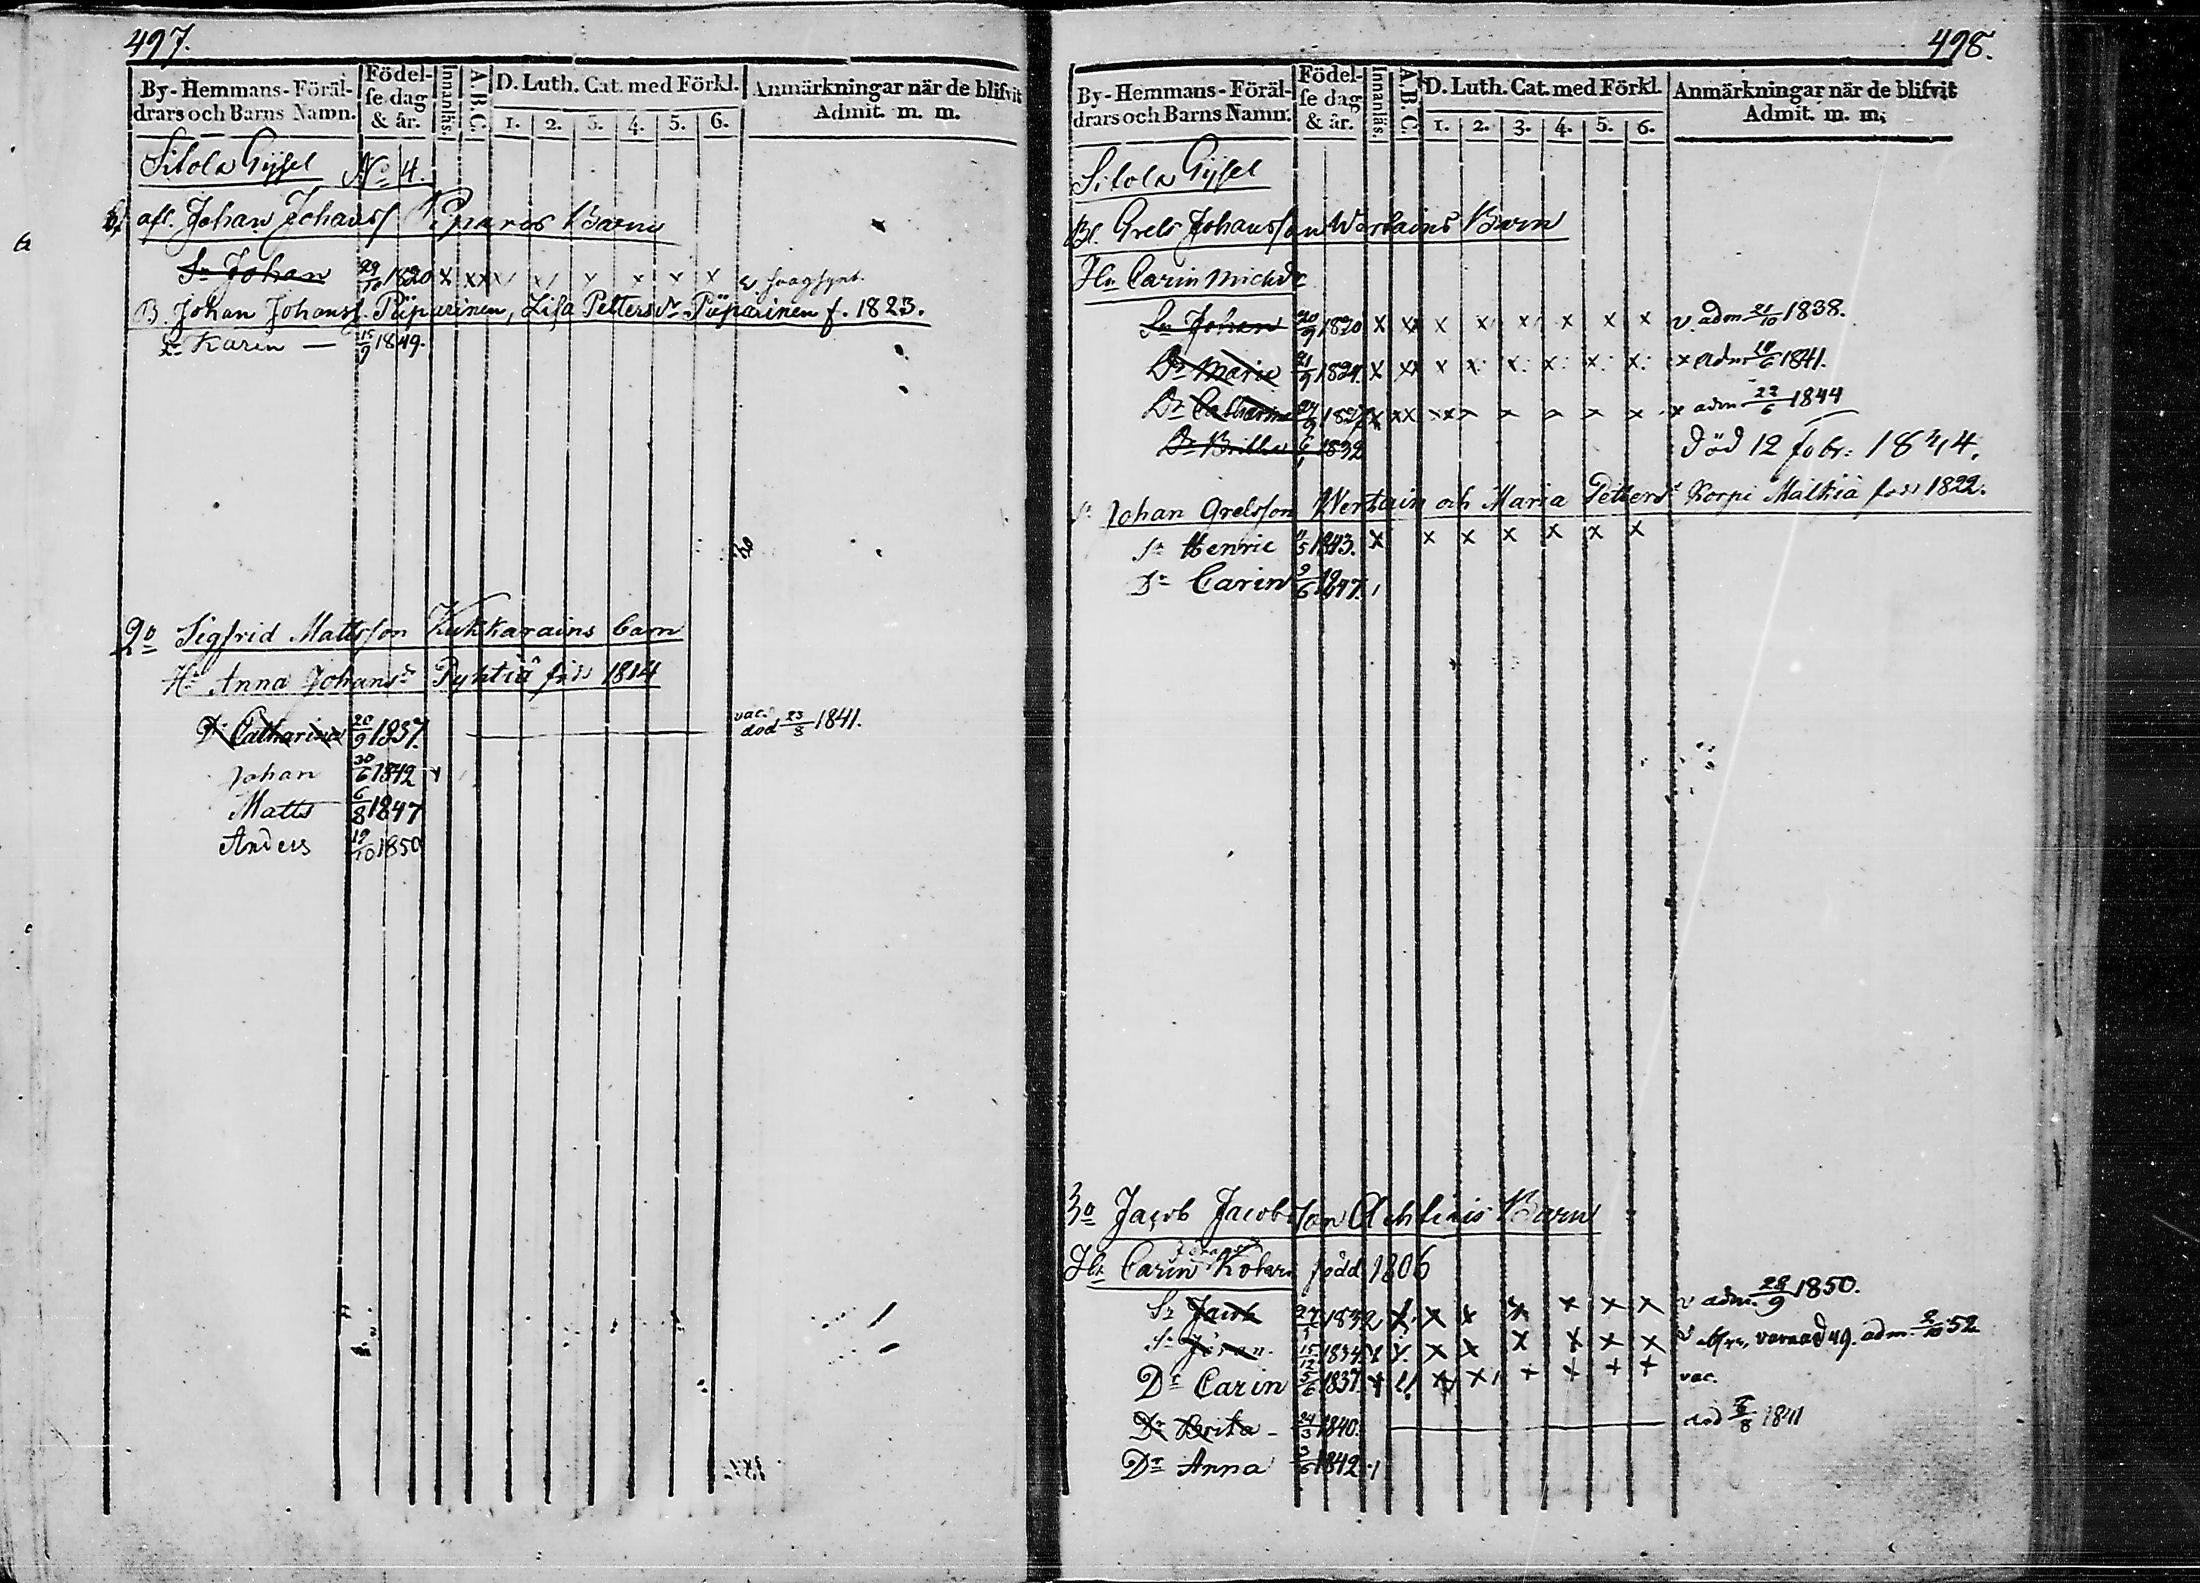 497.
By-Hemmans-Föräldrars och Barns Namn.
Födelse dag & år.
Innanläs.
A.B.C.
D. Luth. Cat. med Förkl.
1. 2. 3. 4. 5. 6.
Anmärkningar när de blifvit Admit. m. m.
Sitola Gyssel No 4.
afl. Johan Johanss Barns
Sn Johan 29/10 1820 x xx x x x x
B. Johan Johanss. Piiparinen, Lisa Pettersdr Piiparinen f. 1823.
Dr Karin — 15/9 1849.
2o Sigfrid Mattsson Kukkarains barn
Hu Anna Johansdr Pyhtiä född 1814
Dr Catharina 20/9 1837. vac. död 23/8 1841.
Johan 30/6 1842
Matts 6/8 1847
Anders 19/10 1850
498.
By-Hemmans-Föräldrars och Barns Namn.
Födelse dag & år.
Innanläs.
A.B.C.
D. Luth. Cat. med Förkl.
1. 2. 3. 4. 5. 6.
Anmärkningar när de blifvit Admit. m. m.
Sitola Gyssel
B. Grels Johansson Wertains Barn
Hu Carin Michdr
Sn Johan 20/9 1820 x xx x x x x x x v. adm 21/10 1838.
Dr Maria 21/9 1824. x xx x x x x x x x adm 1841.
Dr Catharina 1827 x xx x adm 22/6 1844
Dr Britha 6/1 1832 död 12 febr: 1844.
Sn Johan Grelsson Wertain och Maria Pettersdr Korpi Mälkiä född 1822.
Sn Henric 1843. x x x x x x x
Dr Carin 9/6 1847.
3o Jacob Jacobsson Achtiais Barn
Hu Carin född 1806
Sn Jacob 1832 x x x x x x x v adm. 28/9 1850.
Sn Johan 15/12 1834 x x x x x x x varnad 49. adm 2/10 52
Dr Carin 5/6 1837. vac.
Dr Brita - 24/3 1840. död 1841
Dr Anna 3/6 1842